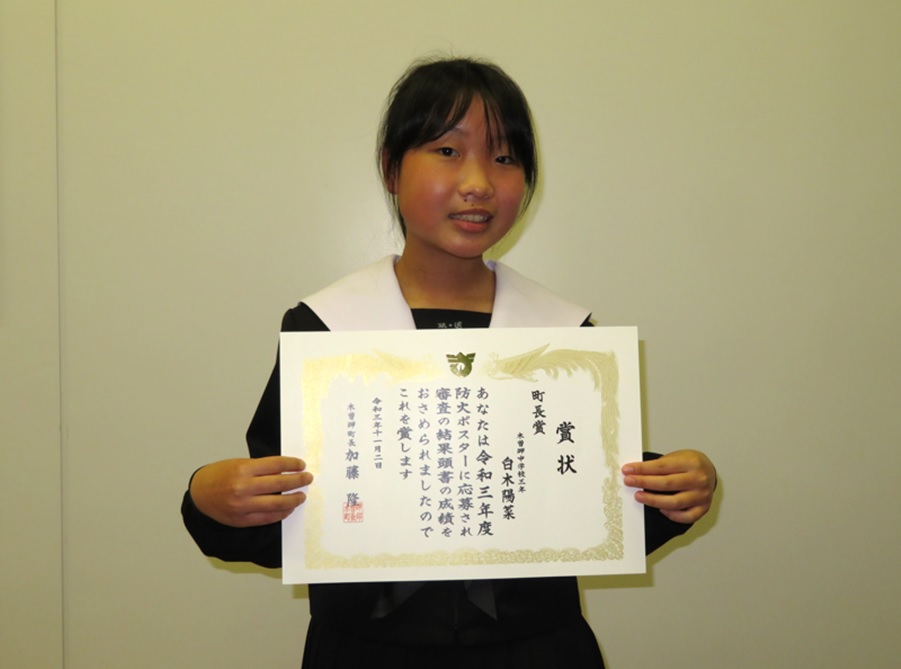 賞状
町長賞
木曽岬中学校三年
白木陽菜
あなたは令和三年度
防火ポスターに応募され
審査の結果頭書の成績を
おさめられましたので
これを賞します
令和三年十一月二日
木曽岬町長 加藤 隆